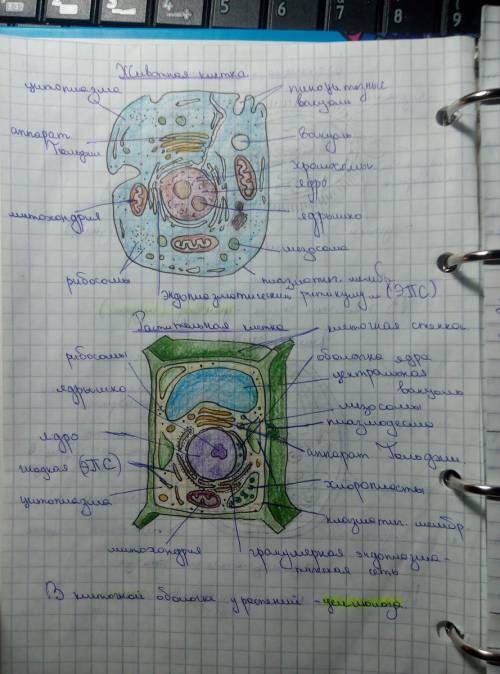 Животная клетка
цитоплазма
пиноцитозные
вакуоли
аппарат
Гольджи
вакуоль
хромосомы
ядро
митохондрия
ядрышко
лизосома
рибосомы
плазматич. мембр.
эндоплазматический ретикулум (ЭПС)
Растительная клетка
клеточная стенка
рибосомы
оболочка ядра
центральная
вакуоль
ядрышко
лизосомы
плазмодесма
ядро
аппарат Гольджи
гладкая (ЭПС)
хлоропласты
цитоплазма
плазматич. мембр
митохондрия
гранулярная эндоплазма-
тическая сеть
В клеточной оболочке у растений - целлюлоза
5
6
7
8
9